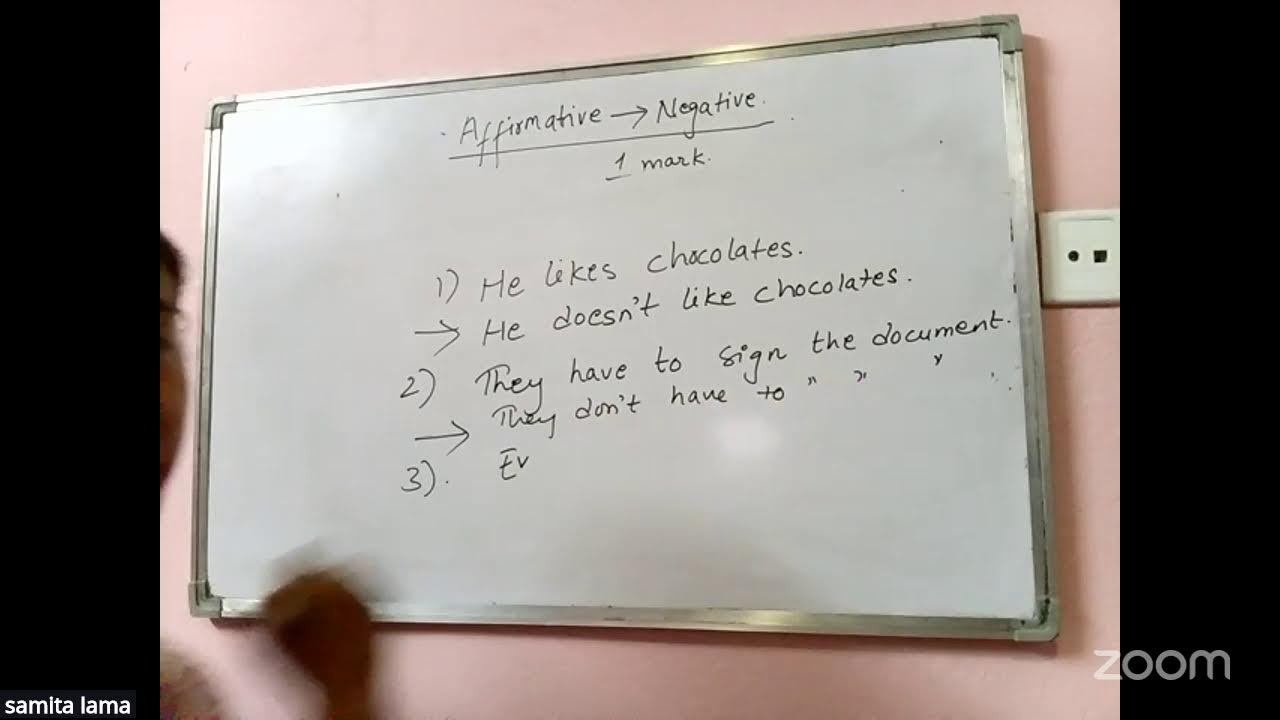 Affirmative → Negative.
1 mark.
1) He likes chocolates.
→ He doesn't like chocolates.
2) They have to sign the document.
→ They don't have to " " " "
3). Ev
zoom
samita lama